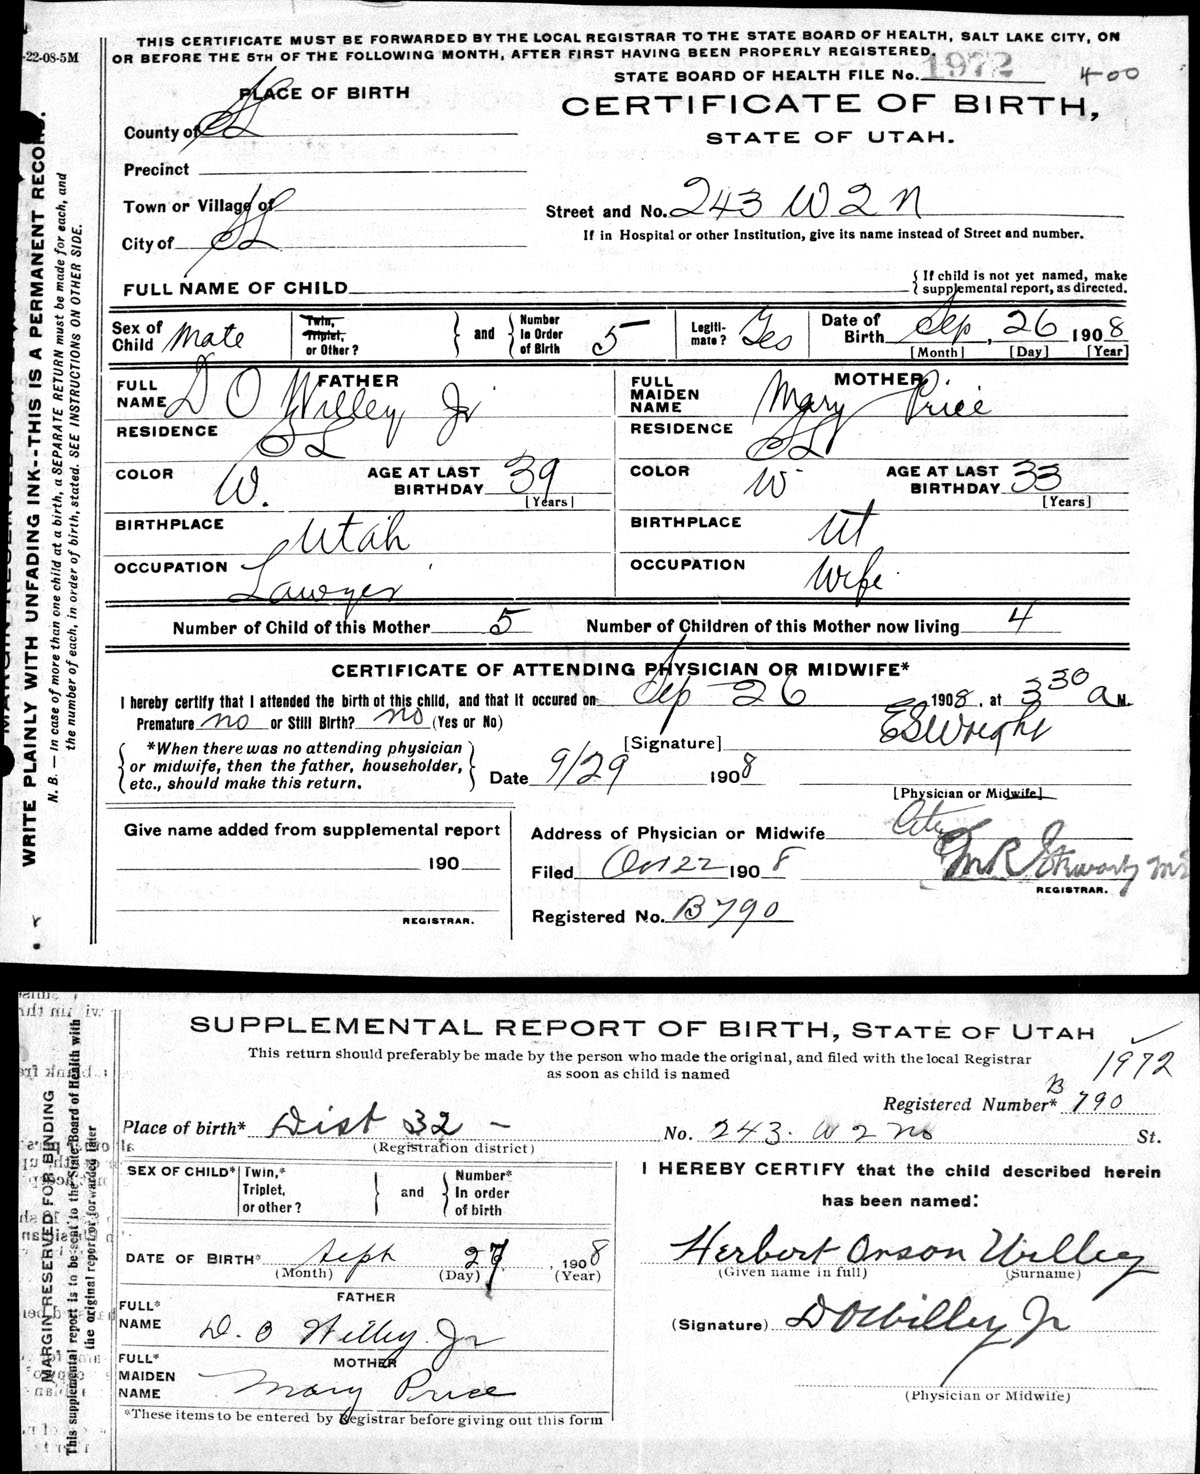 -22-08-5M
THIS CERTIFICATE MUST BE FORWARDED BY THE LOCAL REGISTRAR TO THE STATE BOARD OF HEALTH, SALT LAKE CITY, ON
OR BEFORE THE 5TH OF THE FOLLOWING MONTH, AFTER FIRST HAVING BEEN PROPERLY REGISTERED.
STATE BOARD OF HEALTH FILE No. 1972 400
PLACE OF BIRTH
CERTIFICATE OF BIRTH,
STATE OF UTAH.
County of SL
Precinct
Town or Village of
Street and No. 243 W 2 N
City of SL
If in Hospital or other Institution, give its name instead of Street and number.
FULL NAME OF CHILD
{ If child is not yet named, make
supplemental report, as directed.
Sex of Child Male
Twin, Triplet, or Other?
and
Number In Order of Birth 5
Legiti-mate? Yes
Date of Birth Sep, 26 1908
[Month] [Day] [Year]
FATHER
FULL NAME D O Willey Jr
MOTHER
FULL MAIDEN NAME Mary Price
RESIDENCE SL
RESIDENCE SL
COLOR W. AGE AT LAST BIRTHDAY 39 [Years]
COLOR W AGE AT LAST BIRTHDAY 33 [Years]
BIRTHPLACE Utah
BIRTHPLACE Ut
OCCUPATION Lawyer
OCCUPATION Wife
Number of Child of this Mother 5 Number of Children of this Mother now living 4
CERTIFICATE OF ATTENDING PHYSICIAN OR MIDWIFE*
I hereby certify that I attended the birth of this child, and that it occured on Sep 26 1908, at 3 30 a M.
Premature no or Still Birth? no (Yes or No)
[Signature] ES Wright
*When there was no attending physician
or midwife, then the father, householder,
etc., should make this return.
Date 9/29 1908
[Physician or Midwife]
Give name added from supplemental report
190
REGISTRAR.
Address of Physician or Midwife City
Filed Oct 22 1908
M R Stewart MD
REGISTRAR.
Registered No. B790
WRITE PLAINLY WITH UNFADING INK--THIS IS A PERMANENT RECORD.
N. B. — In case of more than one child at a birth, a SEPARATE RETURN must be made for each, and
the number of each, in order of birth, stated. SEE INSTRUCTIONS ON OTHER SIDE.
SUPPLEMENTAL REPORT OF BIRTH, STATE OF UTAH
This return should preferably be made by the person who made the original, and filed with the local Registrar
as soon as child is named
1972
Registered Number* B 790
Place of birth* Dist 32 - No. 243. W 2 No St.
(Registration district)
SEX OF CHILD*
Twin,* Triplet, or other?
and
Number* In order of birth
I HEREBY CERTIFY that the child described herein
has been named:
DATE OF BIRTH* Sept 27, 1908
(Month) (Day) (Year)
Herbert Orson Willey
(Given name in full) (Surname)
FATHER
FULL* NAME D. O Willey Jr
(Signature) D O Willey Jr
MOTHER
FULL* MAIDEN NAME Mary Price
(Physician or Midwife)
*These items to be entered by Registrar before giving out this form
MARGIN RESERVED FOR BINDING
This supplemental report is to be sent to the State Board of Health with
the original report or forwarded later